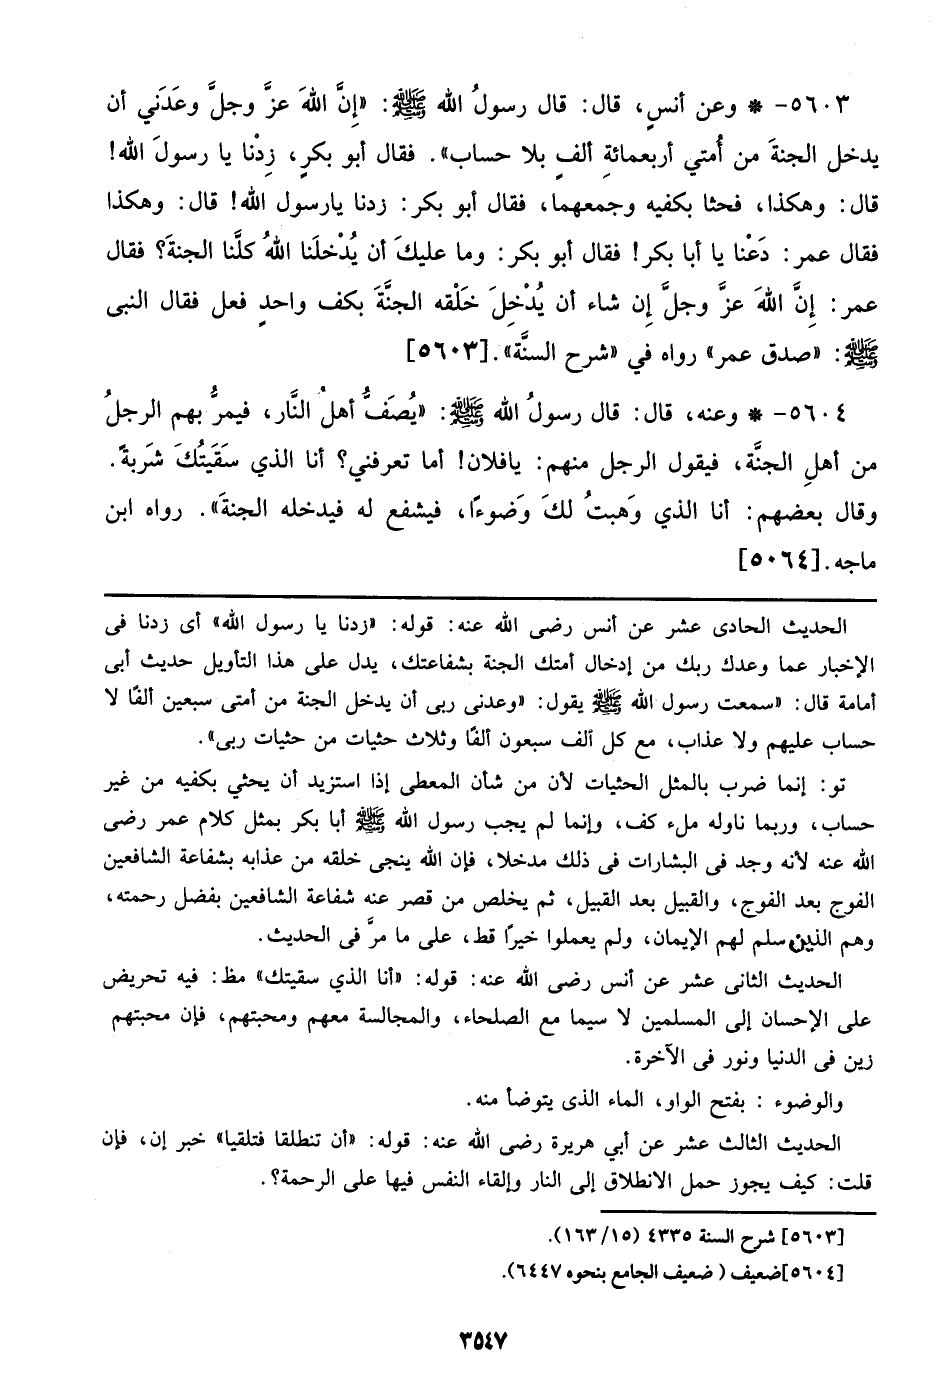 ٥٦٠٣- * وعن أنسٍ، قال: قال رسولُ الله ﷺ: «إنَّ اللهَ عزَّ وجلَّ وعَدَني أن
يدخل الجنةَ من أُمتي أربعمائةِ ألفٍ بلا حساب». فقال أبو بكرٍ، زِدْنا يا رسولَ الله!
قال: وهكذا، فحثا بكفيه وجمعهما، فقال أبو بكر: زدنا يارسول الله! قال: وهكذا
فقال عمر: دَعْنا يا أبا بكر! فقال أبو بكر: وما عليكَ أن يُدْخلَنا اللهُ كلَّنا الجنةَ؟ فقال
عمر: إنَّ اللهَ عزَّ وجلَّ إن شاء أن يُدْخِلَ خَلْقه الجنَّةَ بكف واحدٍ فعل فقال النبى
ﷺ: «صدق عمر» رواه في «شرح السنَّة».[٥٦٠٣]
٥٦٠٤- * وعنه، قال: قال رسولُ الله ﷺ: «يُصَفُّ أهلُ النَّار، فيمرُّ بهم الرجلُ
من أهلِ الجنَّة، فيقول الرجل منهم: يافلان! أما تعرفني؟ أنا الذي سَقَيتُكَ شَربةً.
وقال بعضهم: أنا الذي وَهبتُ لكَ وَضوءًا، فيشفع له فيدخله الجنةَ». رواه ابن
ماجه.[٥٠٦٤]
الحديث الحادى عشر عن أنس رضى الله عنه: قوله: «زدنا يا رسول الله» أى زدنا فى
الإخبار عما وعدك ربك من إدخال أمتك الجنة بشفاعتك، يدل على هذا التأويل حديث أبى
أمامة قال: «سمعت رسول الله ﷺ يقول: «وعدنى ربى أن يدخل الجنة من أمتى سبعين ألفًا لا
حساب عليهم ولا عذاب، مع كل ألف سبعون ألفًا وثلاث حثيات من حثيات ربى».
تو: إنما ضرب بالمثل الحثيات لأن من شأن المعطى إذا استزيد أن يحثي بكفيه من غير
حساب، وربما ناوله ملء كف، وإنما لم يجب رسول الله ﷺ أبا بكر بمثل كلام عمر رضى
الله عنه لأنه وجد فى البشارات فى ذلك مدخلا، فإن الله ينجى خلقه من عذابه بشفاعة الشافعين
الفوج بعد الفوج، والقبيل بعد القبيل، ثم يخلص من قصر عنه شفاعة الشافعين بفضل رحمته،
وهم الذين سلم لهم الإيمان، ولم يعملوا خيرًا قط، على ما مرَّ فى الحديث.
الحديث الثانى عشر عن أنس رضى الله عنه: قوله: «أنا الذي سقيتك» مظ: فيه تحريض
على الإحسان إلى المسلمين لا سيما مع الصلحاء، والمجالسة معهم ومحبتهم، فإن محبتهم
زين فى الدنيا ونور فى الآخرة.
والوضوء : بفتح الواو، الماء الذى يتوضأ منه.
الحديث الثالث عشر عن أبي هريرة رضى الله عنه: قوله: «أن تنطلقا فتلقيا» خبر إن، فإن
قلت: كيف يجوز حمل الانطلاق إلى النار وإلقاء النفس فيها على الرحمة؟.
[٥٦٠٣] شرح السنة ٤٣٣٥ (١٦٣/١٥).
[٥٦٠٤]ضعيف ( ضعيف الجامع بنحوه ٦٤٤٧).
٣٥٤٧